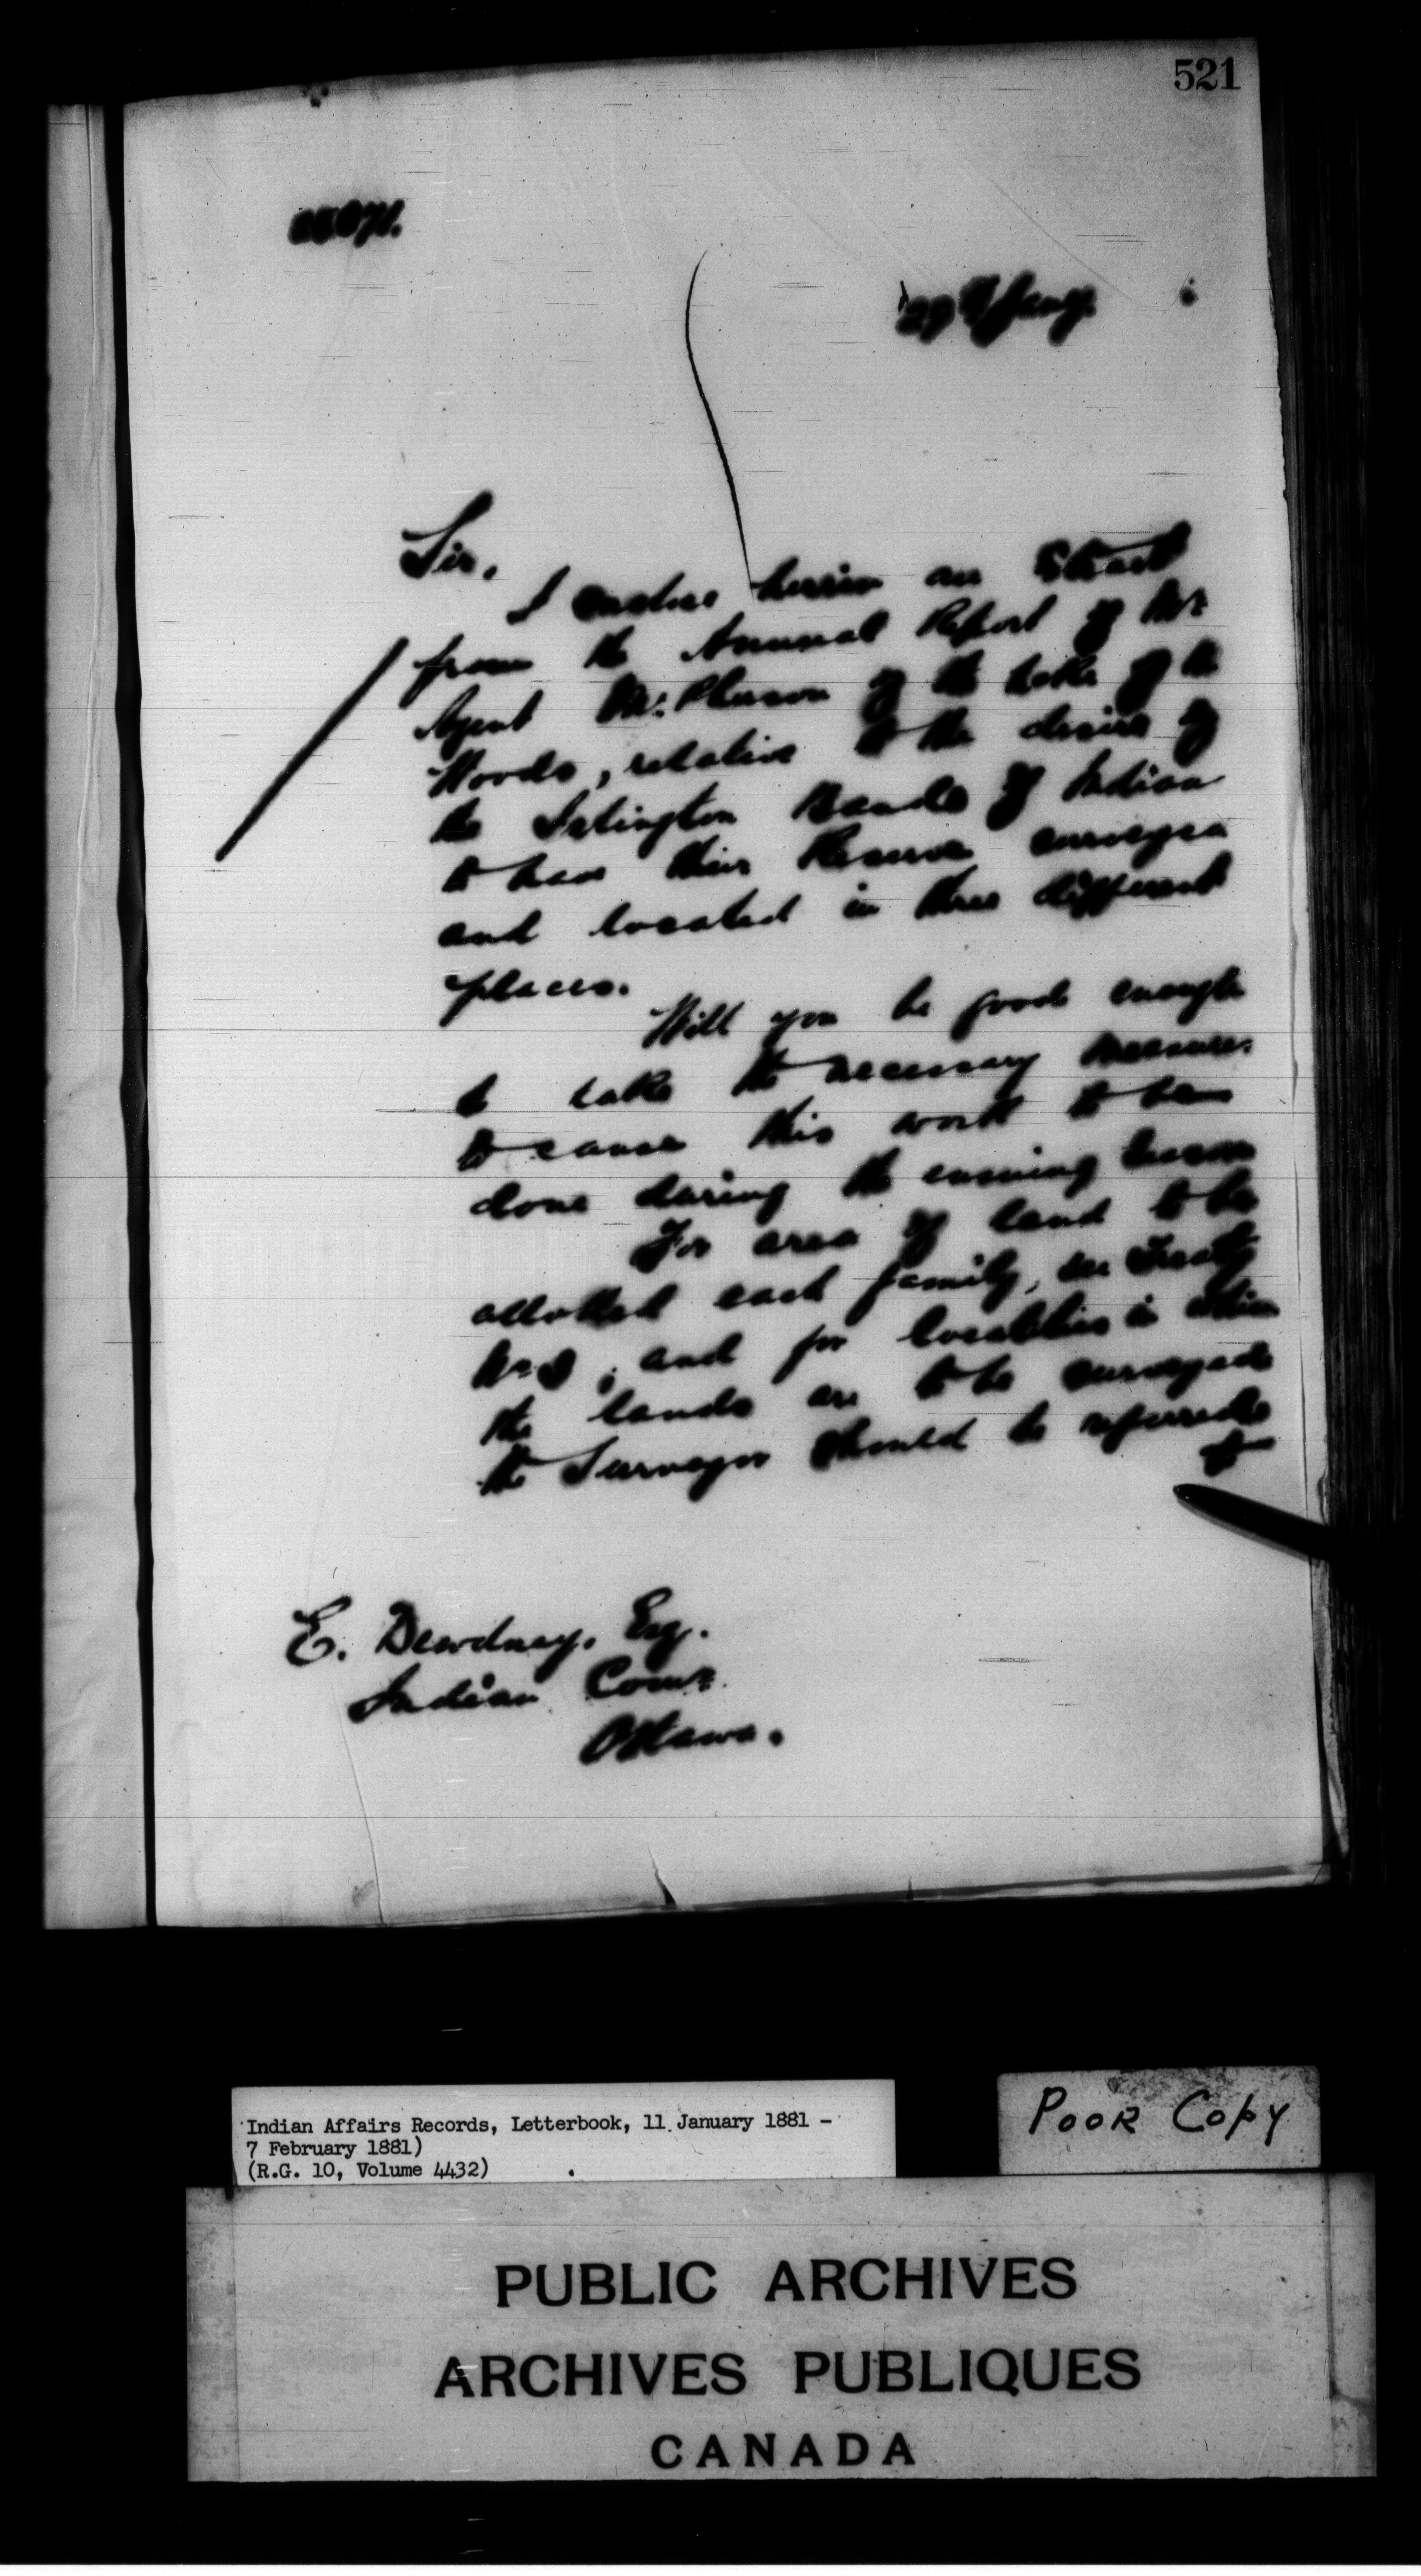 521
29th Jany.
Sir,
I enclose herein an Extract
from the Annual Report of Mr
Agent McPherson of the Lake of the
Woods, relative to the desire of
the Islington Bands of Indian
to have their Reserve surveyed
and located in three different
places.
Will you be good enough
to take the necessary measures
to cause this work to be
done during the ensuing season
For area of land to be
allotted each family, see Treaty
No 3, and for localities in which
the lands are to be surveyed
the Surveyor should be referred
to
E. Dewdney, Esq.
Indian Comr.
Ottawa.
Indian Affairs Records, Letterbook, 11 January 1881 -
7 February 1881)
(R.G. 10, Volume 4432)
POOR COPY
PUBLIC ARCHIVES
ARCHIVES PUBLIQUES
CANADA